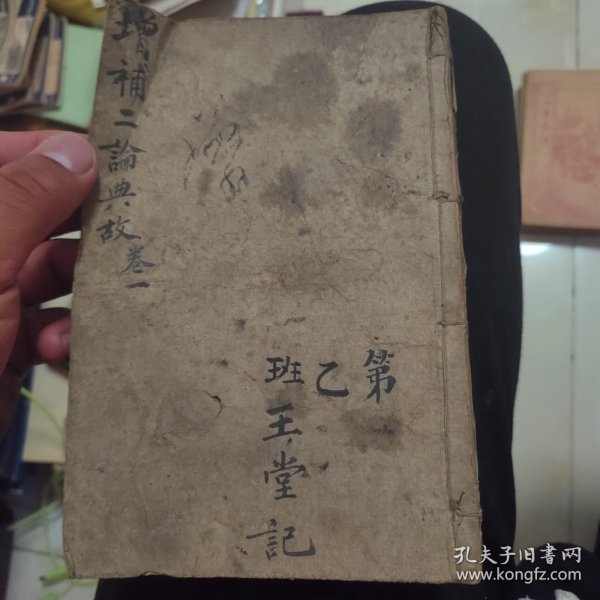 增補二論典故卷一
第乙班
王堂記
孔夫子旧書网
www.kongfz.com